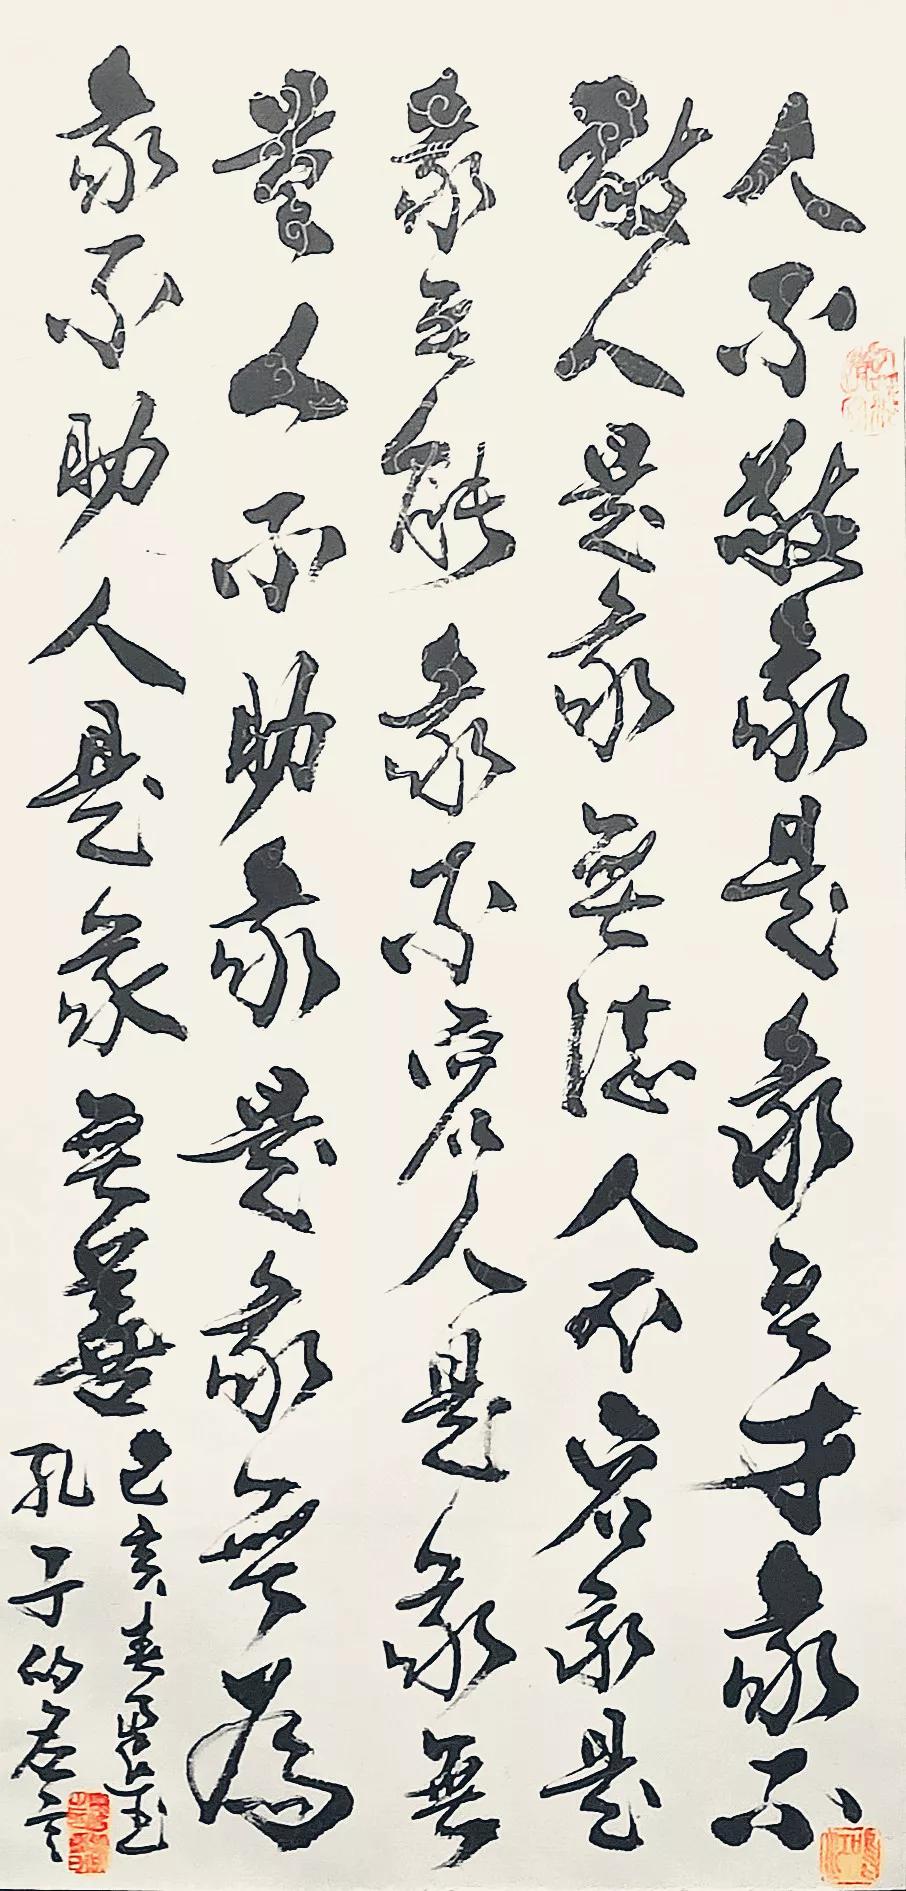 人不敬我是我無才我不
敬人是我無德人不容我是
我無能我不容人是我無
量人不助我是我無為
我不助人是我無善
己亥春
孔子的名言